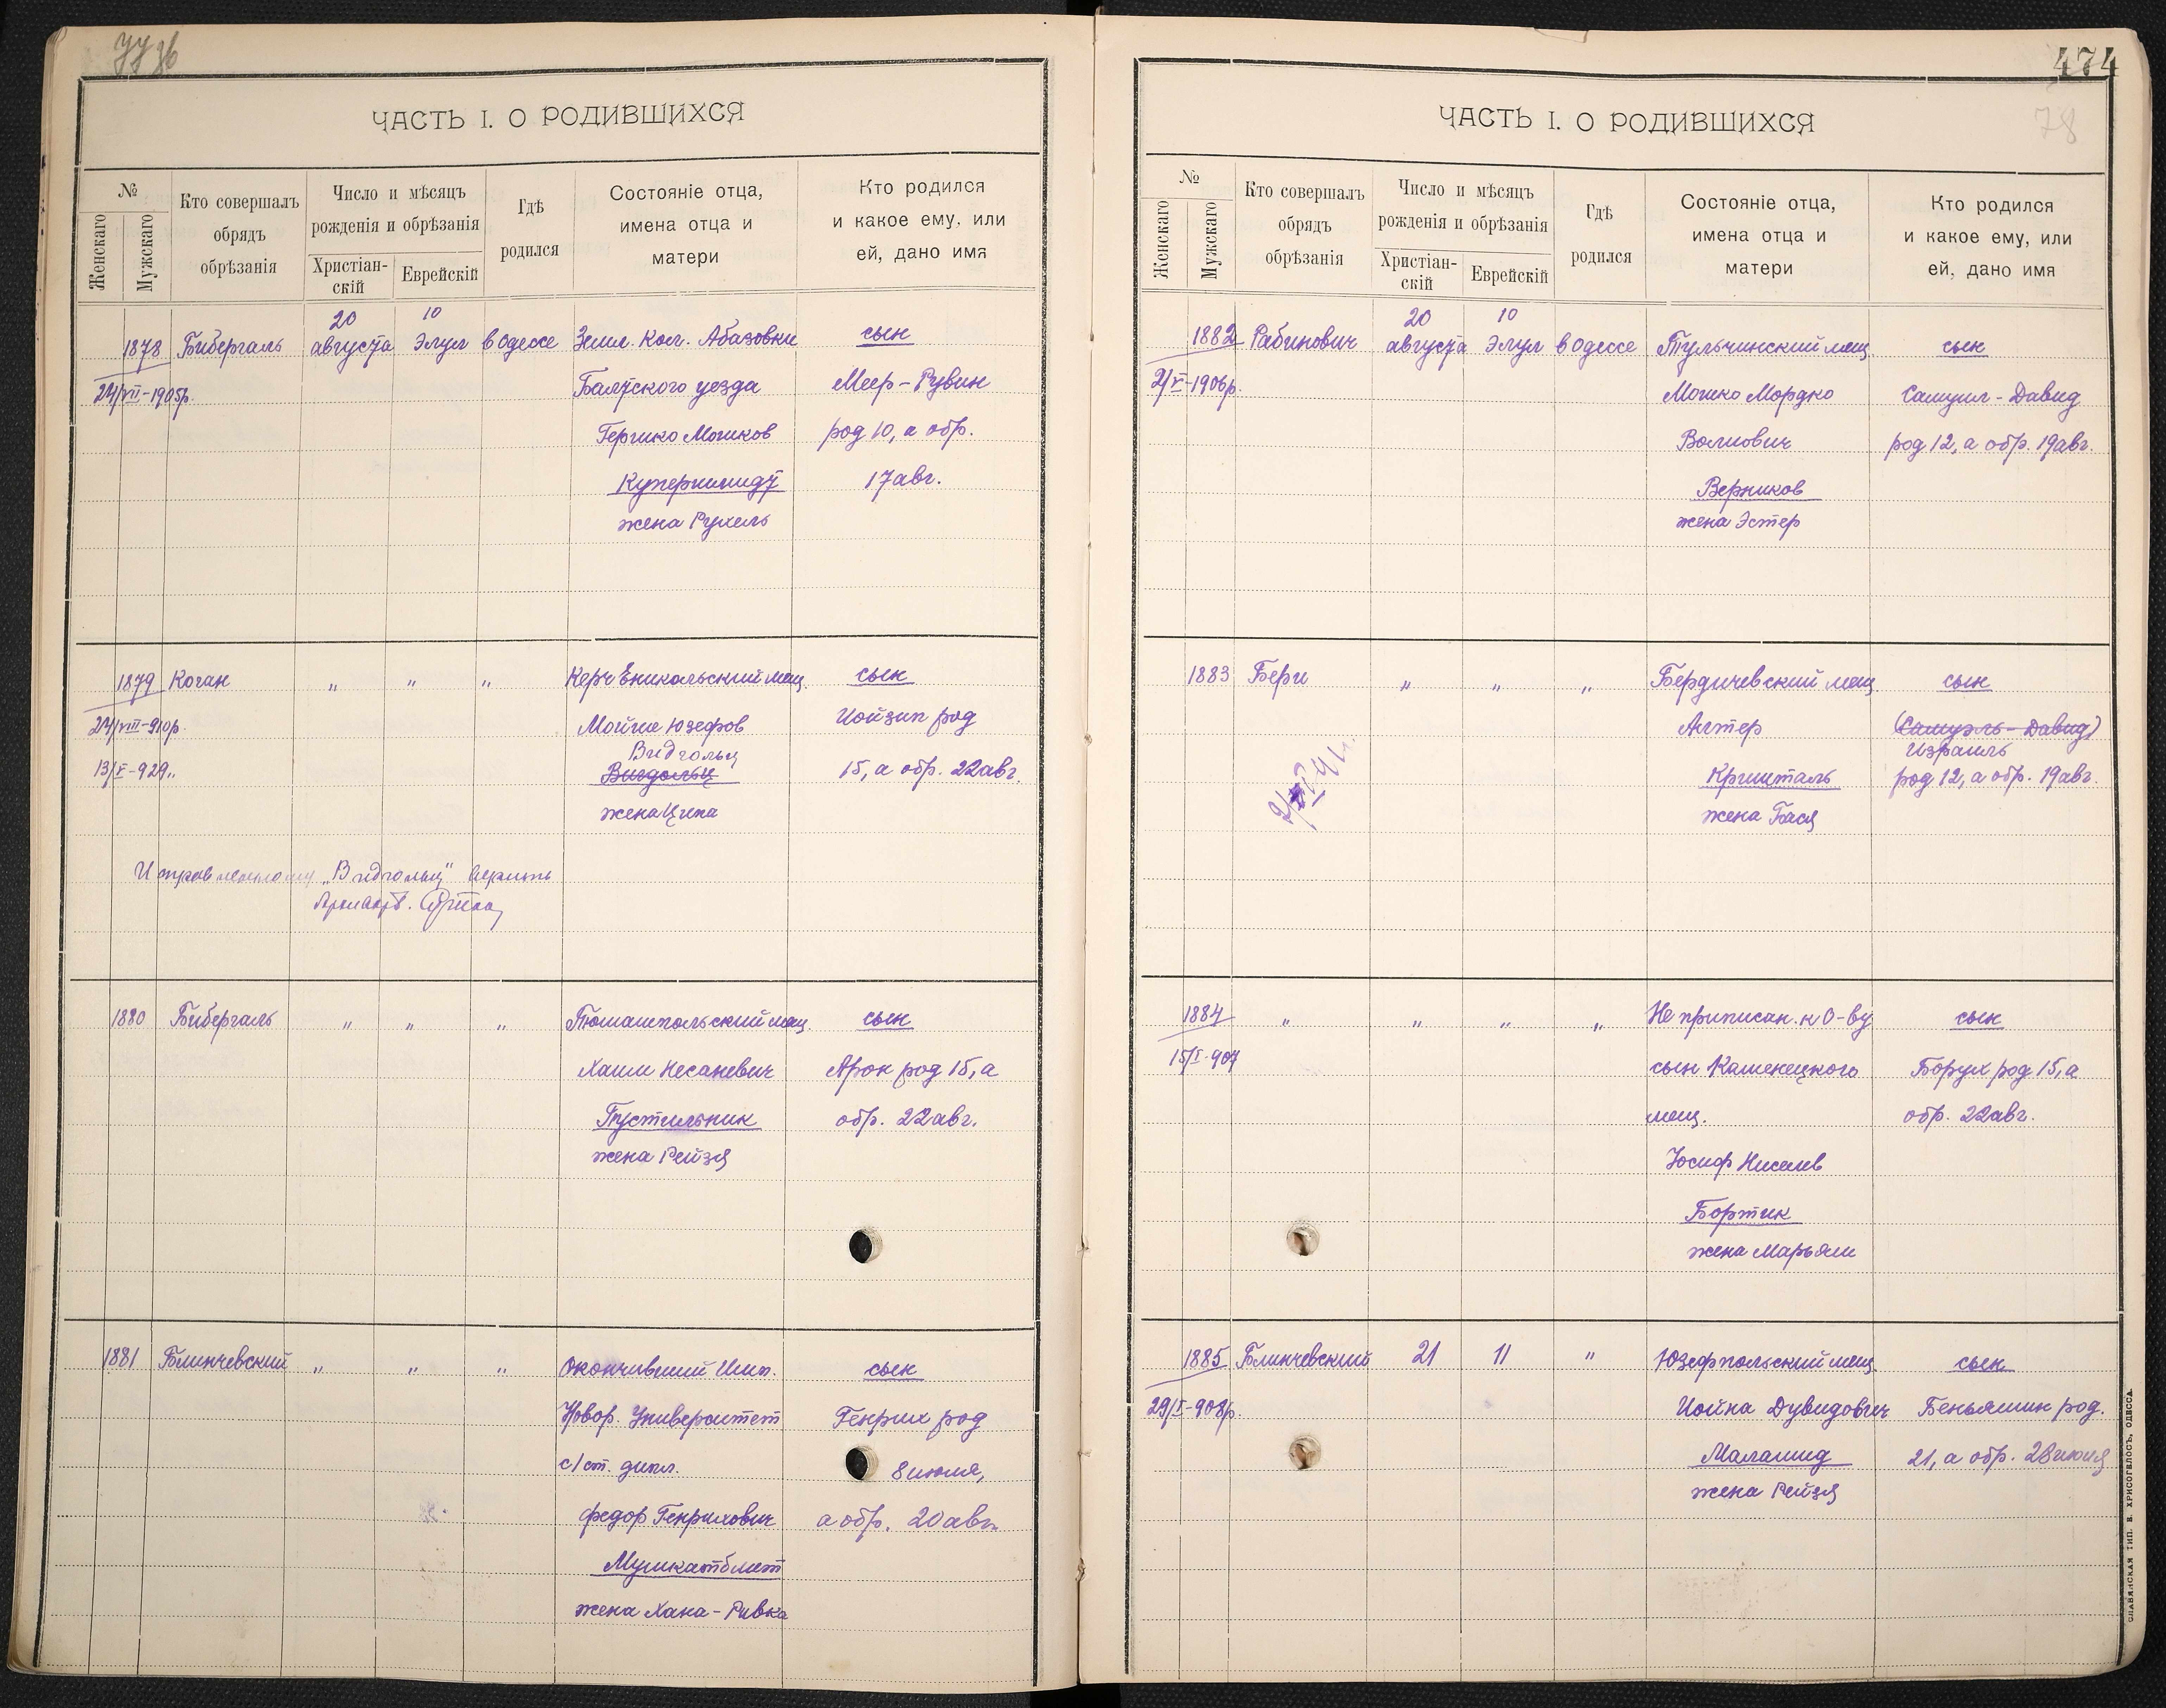 77 об
ЧАСТЬ I. О РОДИВШИХСЯ
№
Женскаго
Мужскаго
Кто совершалъ
обрядъ
обрѣзанія
Число и мѣсяцъ
рожденія и обрѣзанія
Христіан-
скій
Еврейскій
Гдѣ
родился
Состояніе отца,
имена отца и
матери
Кто родился
и какое ему, или
ей, дано имя
20 10
1878 Бибергаль августа Элул в Одессе Земл. Кол. Абазовки сын
24/VII-1905р. Балтского уезда Меер-Рувин
Гершко Мошков род 10, а обр.
Купершмидт 17 авг.
жена Рухель
1879 Коган " " " Керч Еникольский мещ. сын
24/VIII-910р. Мойше Юзефов Иойзип род
Видгольц
13/X-929.. Вигдольц 15, а обр. 22 авг.
жена Ципа
Исправленному „Видгольц" верить
1880 Бибергаль " " " Томашпольский мещ. сын
Хаим Несаневич Арон род 15, а
Пустильник обр. 22 авг.
жена Рейзя
1881 Блинчевский " " " Окончивший Имп. сын
Новор. Университет Генрих род
с/ст. дипл. 8 июля,
Федор Генрихович а обр. 20 авг.
Мушкатблит
жена Хана-Ривка
474
78
ЧАСТЬ I. О РОДИВШИХСЯ
№
Женскаго
Мужскаго
Кто совершалъ
обрядъ
обрѣзанія
Число и мѣсяцъ
рожденія и обрѣзанія
Христіан-
скій
Еврейскій
Гдѣ
родился
Состояніе отца,
имена отца и
матери
Кто родился
и какое ему, или
ей, дано имя
20 10
1882 Рабинович августа Элул в Одессе Тульчинский мещ. сын
2/V-1906р. Мошко Мордко Самуил-Давид
Волкович род 12, а обр. 19 авг.
Верников
жена Эстер
1883 Бери " " " Бердичевский мещ. сын
Алтер (Самуэль-Давид)
Израиль
Кришталь род 12, а обр. 19 авг.
жена Бася
1884 " " " " Не приписан. к О-ву сын
15/I-907 сын Каменецкого Борух род 15, а
мещ. обр. 22 авг.
Иосиф Киселев
Бортик
жена Марьям
1885 Блинчевский 21 11 " Юзефпольский мещ. сын
29/I-908р. Иойна Дувидович Беньямин род.
Маламид 21, а обр. 28 июля
жена Рейзя
СЛАВЯНСКАЯ ТИП. Н. ХРИСОГЕЛОСЪ, ОДЕССА.